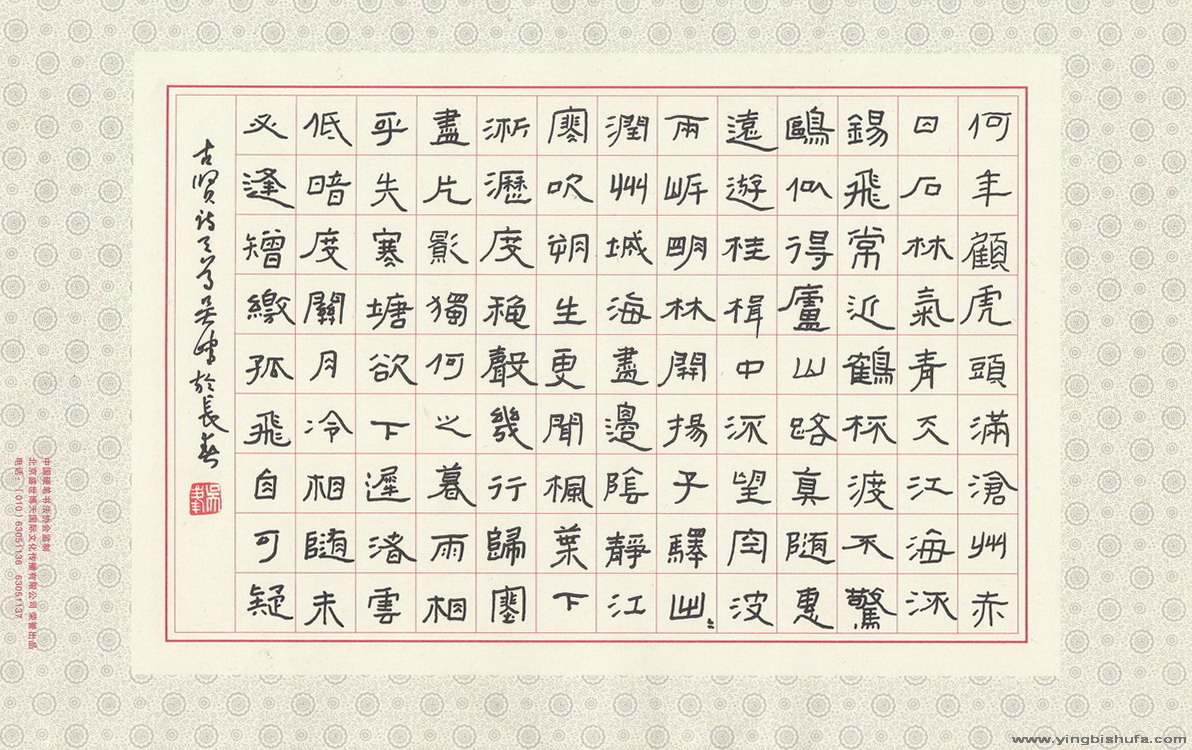 何年顧虎頭滿滄州赤
日石林氣青天江海流
錫飛常近鶴杯渡不驚
鷗似得廬山路真隨惠
遠遊桂楫中流望空波
兩岸明林開揚子驛出
潤州城海盡邊陰靜江
寒吹朔生更聞楓葉下
淅瀝度秋聲幾行歸塞
盡片影獨何之暮雨相
乎失寒塘欲下遲渚雲
低暗度關月冷相隨未
必逢矰繳孤飛自可疑
古賢詩三首吳峰於長春
中国硬笔书法协会监制
北京盛世博天国际文化传播有限公司 荣誉出品
电话:(010)63051136 63051137
www.yingbishufa.com